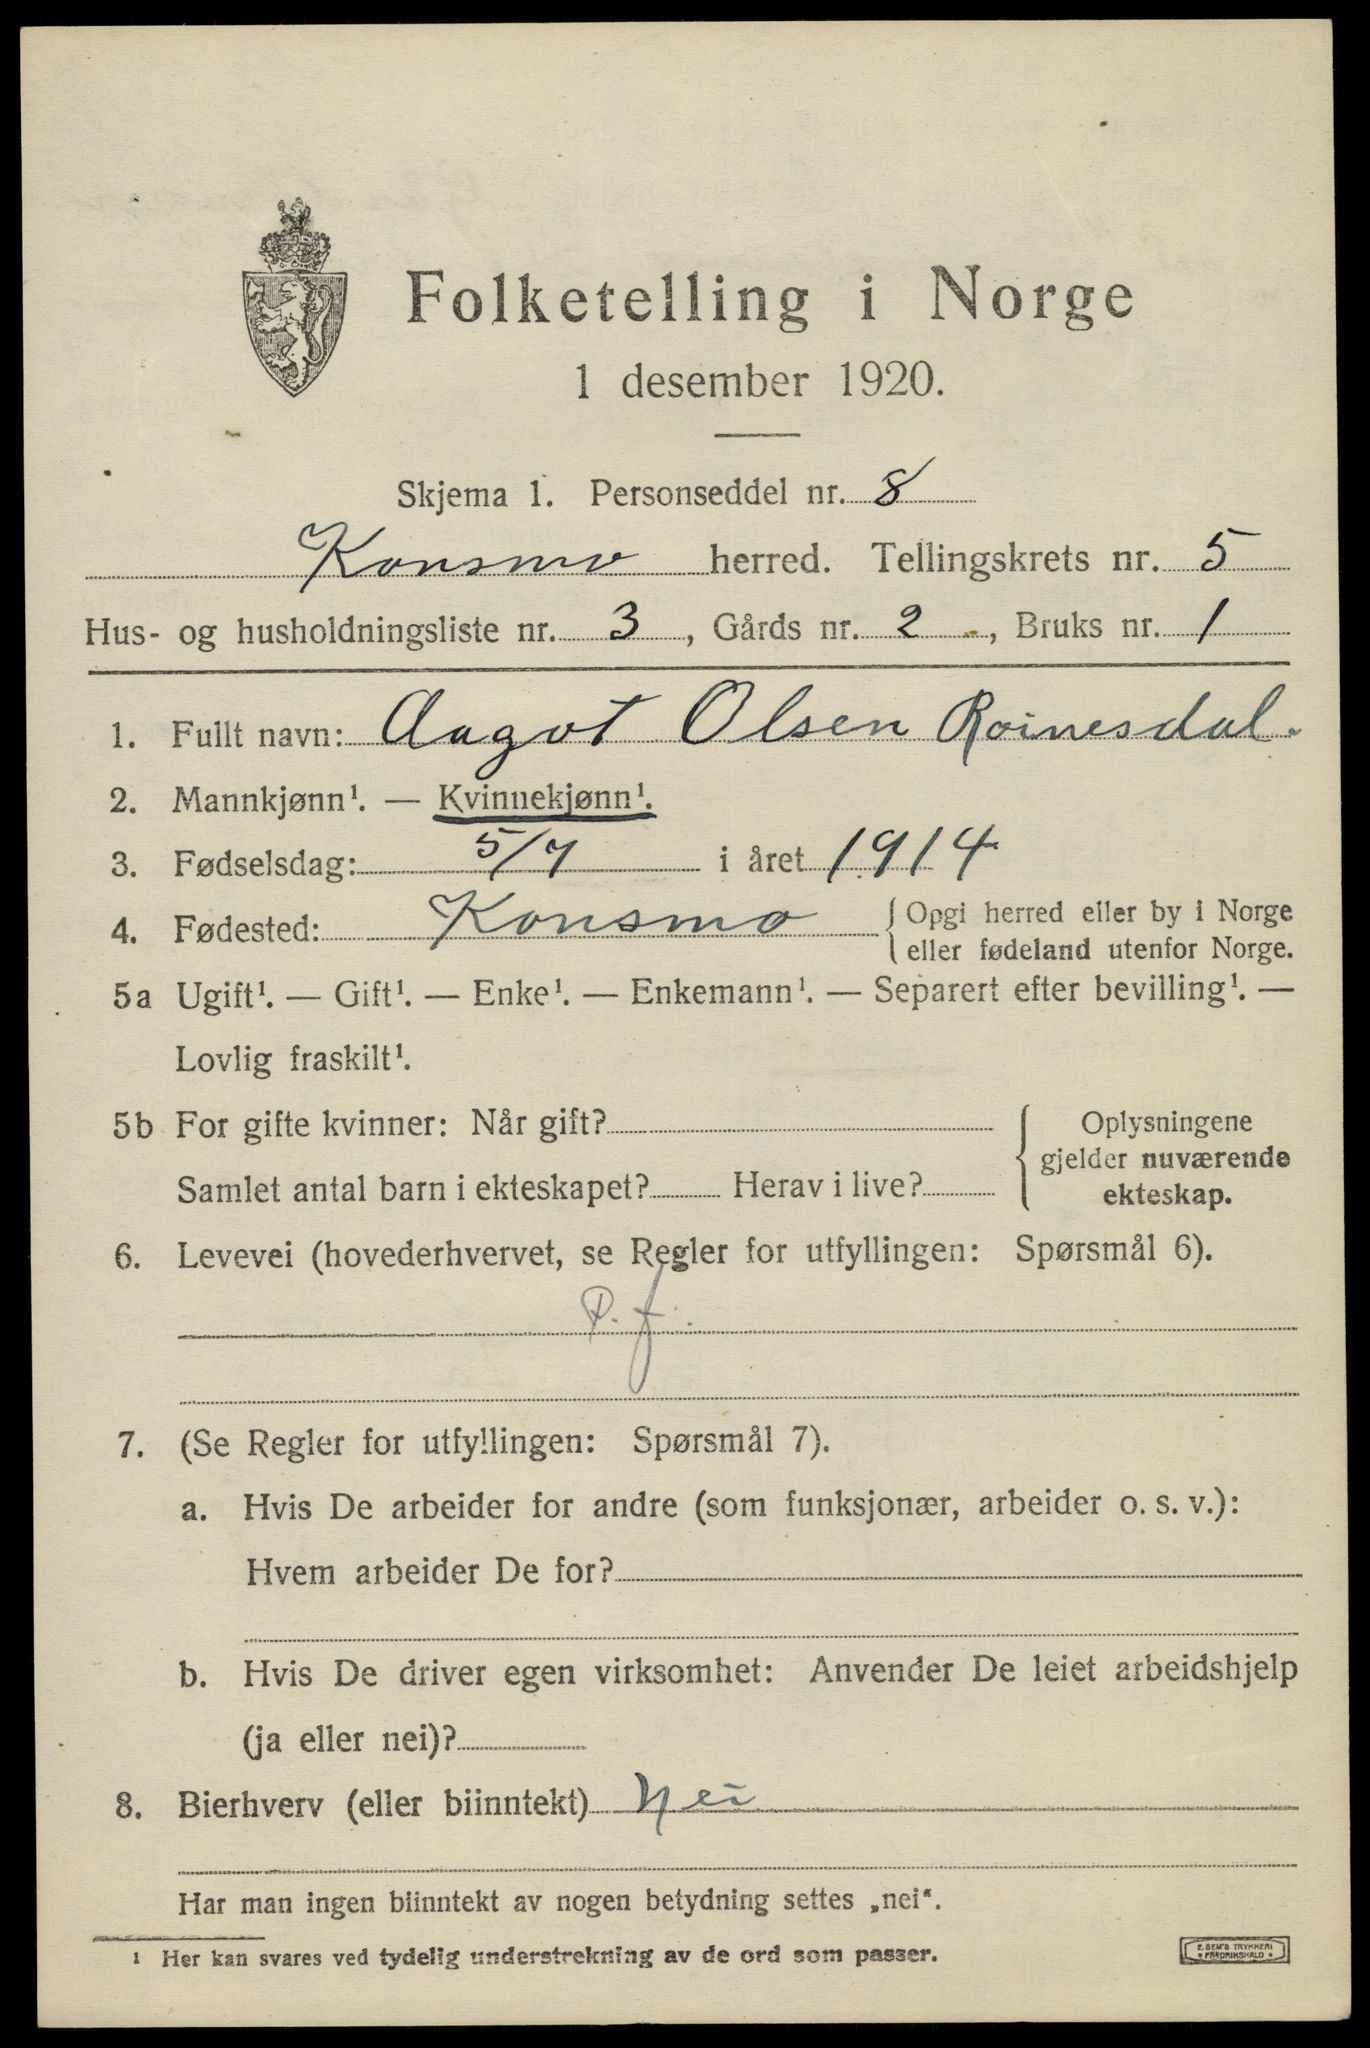 Folketelling i Norge
1 desember 1920.
Skjema 1. Personseddel nr. 8
Konsmo herred. Tellingskrets nr. 5
Hus- og husholdningsliste nr. 3, Gårds nr. 2, Bruks nr. 1
1. Fullt navn: Aagot Olsen Roinesdal.
2. Mannkjønn¹. — Kvinnekjønn¹.
3. Fødselsdag: 5/7 i året 1914
4. Fødested: Konsmo { Opgi herred eller by i Norge
eller fødeland utenfor Norge.
5a Ugift¹. — Gift¹. — Enke¹. — Enkemann¹. — Separert efter bevilling¹. —
Lovlig fraskilt¹.
5b For gifte kvinner: Når gift?
Samlet antal barn i ekteskapet? Herav i live?
Oplysningene
gjelder nuværende
ekteskap.
6. Levevei (hovederhvervet, se Regler for utfyllingen: Spørsmål 6).
P. f.
7. (Se Regler for utfyllingen: Spørsmål 7).
a. Hvis De arbeider for andre (som funksjonær, arbeider o. s. v.):
Hvem arbeider De for?
b. Hvis De driver egen virksomhet: Anvender De leiet arbeidshjelp
(ja eller nei)?
8. Bierhverv (eller biinntekt) Nei
Har man ingen biinntekt av nogen betydning settes „nei“.
¹ Her kan svares ved tydelig understrekning av de ord som passer.
E. SEM'S TRYKKERI
FREDRIKSHALD